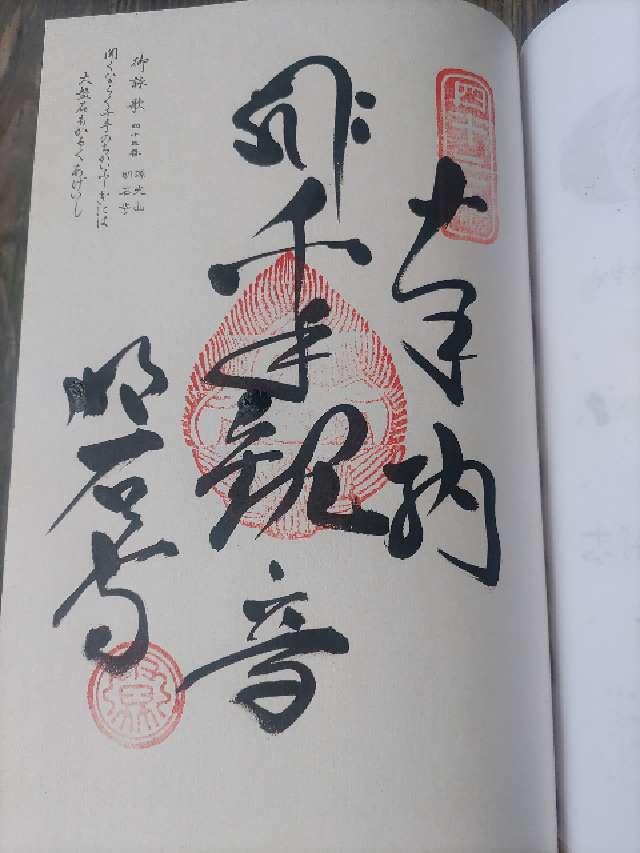 奉納
千手観音
明石寺
御詠歌 四十三番 源光山 明石寺
聞くならく千手のちかいふしぎには
大盤石もかろくあげいし